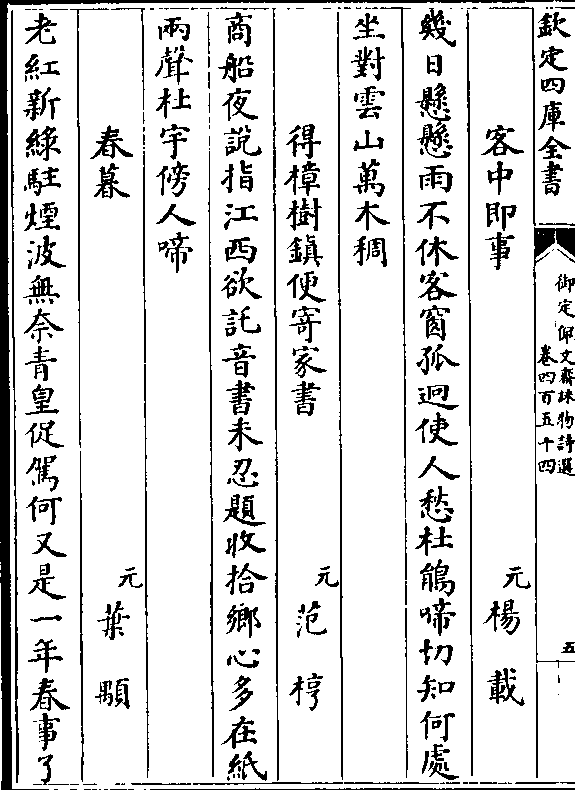 欽定四庫全書
御定佩文齋咏物詩選
卷四百五十四
五
客中即事
元楊載
幾日懸懸雨不休客窗孤迥使人愁杜鵑啼切知何處
坐對雲山萬木稠
得樟樹鎮便寄家書
元范梈
商船夜說指江西欲託音書未忍題收拾鄉心多在紙
兩聲杜宇傍人啼
春暮
元葉顒
老紅新綠駐煙波無奈青皇促駕何又是一年春事了